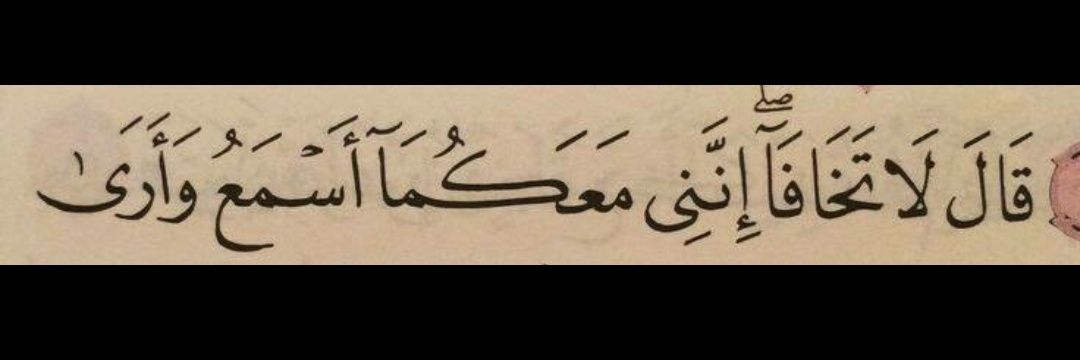 قَالَ لَا تَخَافَآۖ إِنَّنِى مَعَكُمَآ أَسْمَعُ وَأَرَىٰ